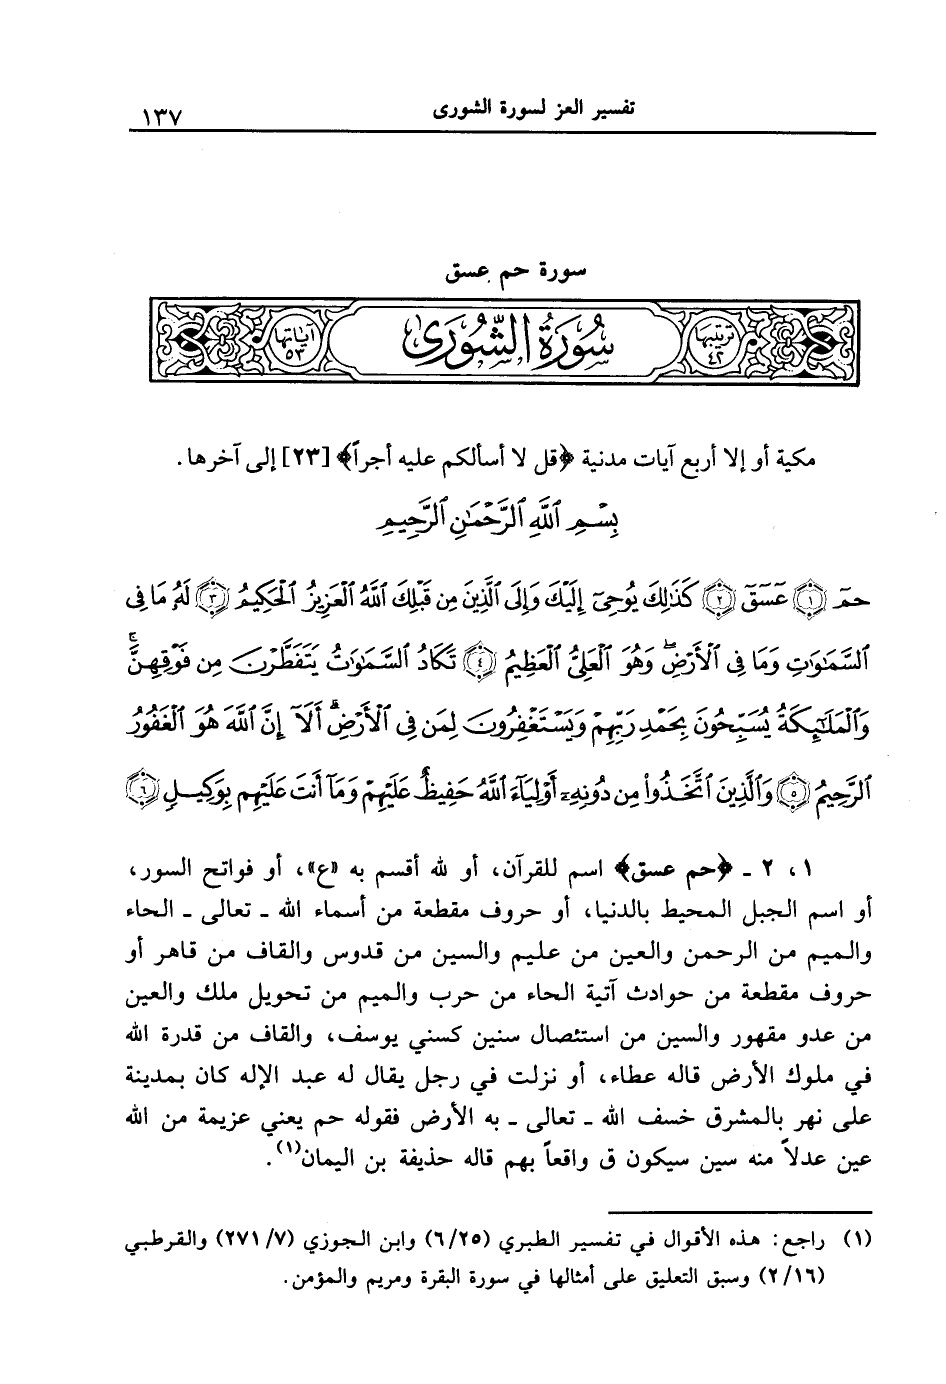 تفسير العز لسورة الشورى ١٣٧
سورة حم عسق
ترتيبها ٤٢ سُورَةُ الشُّورَىٰ آياتها ٥٣
مكية أو إلا أربع آيات مدنية ﴿قل لا أسألكم عليه أجراً﴾ [٢٣] إلى آخرها.
بِسْمِ ٱللَّهِ ٱلرَّحْمَٰنِ ٱلرَّحِيمِ
حمٓ ۝١ عٓسٓقٓ ۝٢ كَذَٰلِكَ يُوحِىٓ إِلَيْكَ وَإِلَى ٱلَّذِينَ مِن قَبْلِكَ ٱللَّهُ ٱلْعَزِيزُ ٱلْحَكِيمُ ۝٣ لَهُۥ مَا فِى
ٱلسَّمَٰوَٰتِ وَمَا فِى ٱلْأَرْضِ ۖ وَهُوَ ٱلْعَلِىُّ ٱلْعَظِيمُ ۝٤ تَكَادُ ٱلسَّمَٰوَٰتُ يَتَفَطَّرْنَ مِن فَوْقِهِنَّ ۚ
وَٱلْمَلَٰٓئِكَةُ يُسَبِّحُونَ بِحَمْدِ رَبِّهِمْ وَيَسْتَغْفِرُونَ لِمَن فِى ٱلْأَرْضِ ۗ أَلَآ إِنَّ ٱللَّهَ هُوَ ٱلْغَفُورُ
ٱلرَّحِيمُ ۝٥ وَٱلَّذِينَ ٱتَّخَذُوا۟ مِن دُونِهِۦٓ أَوْلِيَآءَ ٱللَّهُ حَفِيظٌ عَلَيْهِمْ وَمَآ أَنتَ عَلَيْهِم بِوَكِيلٍ ۝٦
١ ، ٢ ـ ﴿حم عسق﴾ اسم للقرآن، أو لله أقسم به «ع»، أو فواتح السور،
أو اسم الجبل المحيط بالدنيا، أو حروف مقطعة من أسماء الله ـ تعالى ـ الحاء
والميم من الرحمن والعين من عليم والسين من قدوس والقاف من قاهر أو
حروف مقطعة من حوادث آتية الحاء من حرب والميم من تحويل ملك والعين
من عدو مقهور والسين من استئصال سنين كسني يوسف، والقاف من قدرة الله
في ملوك الأرض قاله عطاء، أو نزلت في رجل يقال له عبد الإله كان بمدينة
على نهر بالمشرق خسف الله ـ تعالى ـ به الأرض فقوله حم يعني عزيمة من الله
عين عدلاً منه سين سيكون ق واقعاً بهم قاله حذيفة بن اليمان(١).
(١) راجع: هذه الأقوال في تفسير الطبري (٦/٢٥) وابن الجوزي (٢٧١/٧) والقرطبي
(٢/١٦) وسبق التعليق على أمثالها في سورة البقرة ومريم والمؤمن.